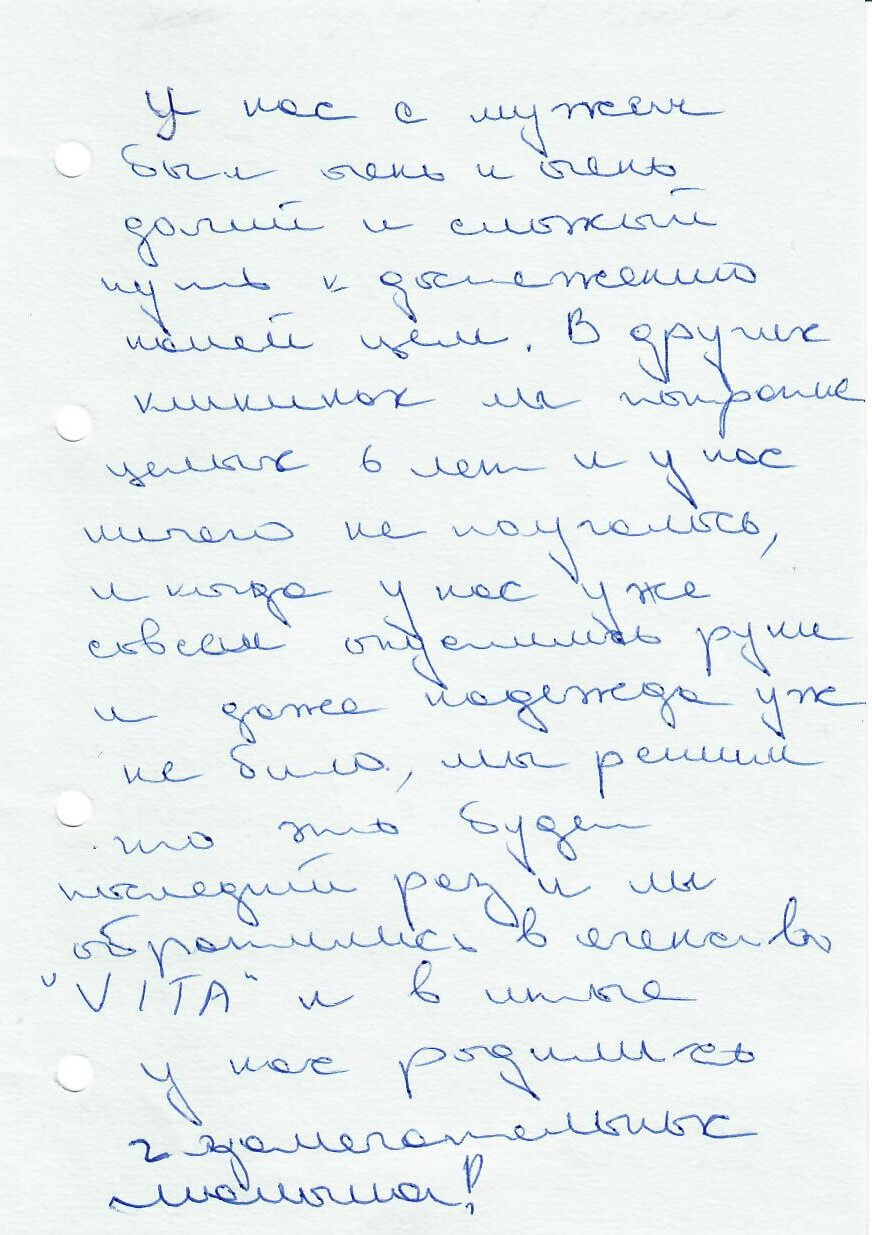 У нас с мужем
был очень и очень
долгий и сложый
путь к достежению
нашей цели. В других
клиниках мы потратие
целых 6 лет и у нас
ничего не поучалось,
и когда у нас уже
совсем опустились руки
и даже надежда уж
не было, мы решили
что это будет
последний раз и мы
обратились в агенство
"VITA" и в итоге
у нас родились
2 замечательных
малыша!